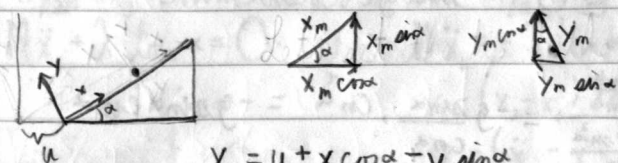 y x α
u
x_m x_m sinα α x_m cosα
y_m cosα α y_m y_m sinα
x = u + x cosα - y sinα